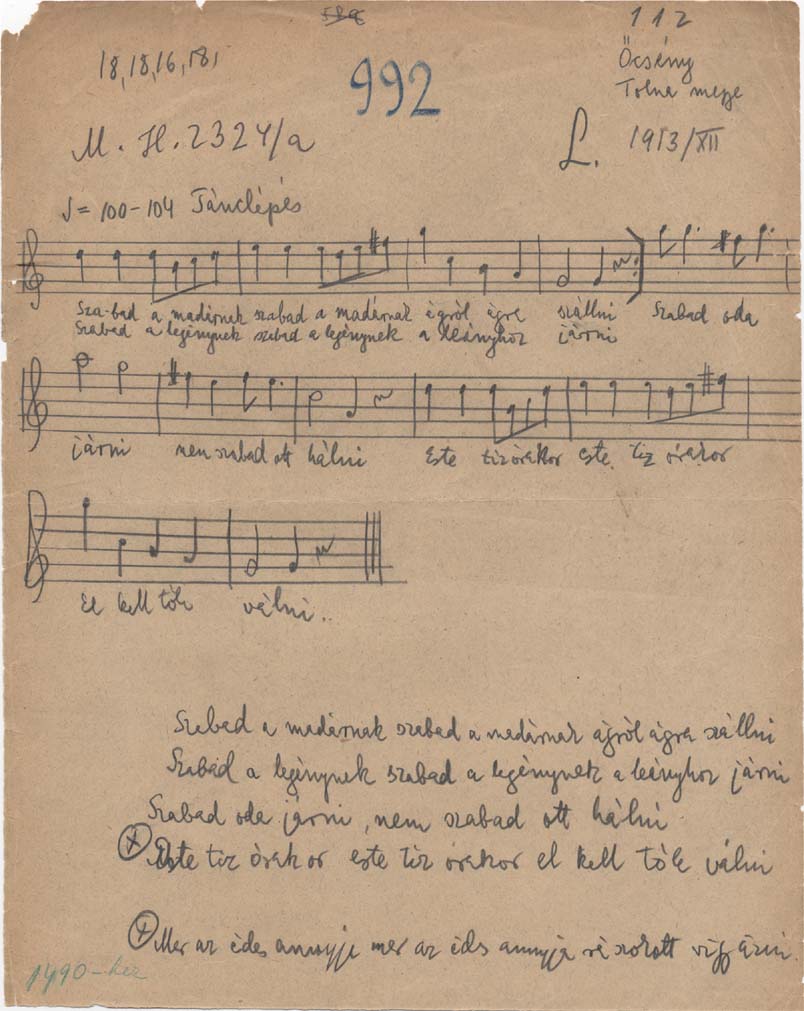 112
18,18,16,18,
992
Őcsény
Tolna megye
M. H. 2324/a
L. 1913/XII
♩= 100-104 Tánclépés
Sza-bad a madárnak szabad a madárnak ágról ágra szállni Szabad oda
Szabad a legénynek szabad a legénynek a leányhoz járni
járni nem szabad ott hálni Este tiz órakor este tiz órakor
el kell tőle válni..
Szabad a madárnak szabad a madárnak ágról ágra szállni
Szabad a legénynek szabad a legénynek a leányhoz járni
Szabad oda járni, nem szabad ott hálni
Este tiz órakor este tiz órakor el kell tőle válni
Mer az édes annyja mer az édes annyja rá szokott vigyázni
1490-hez